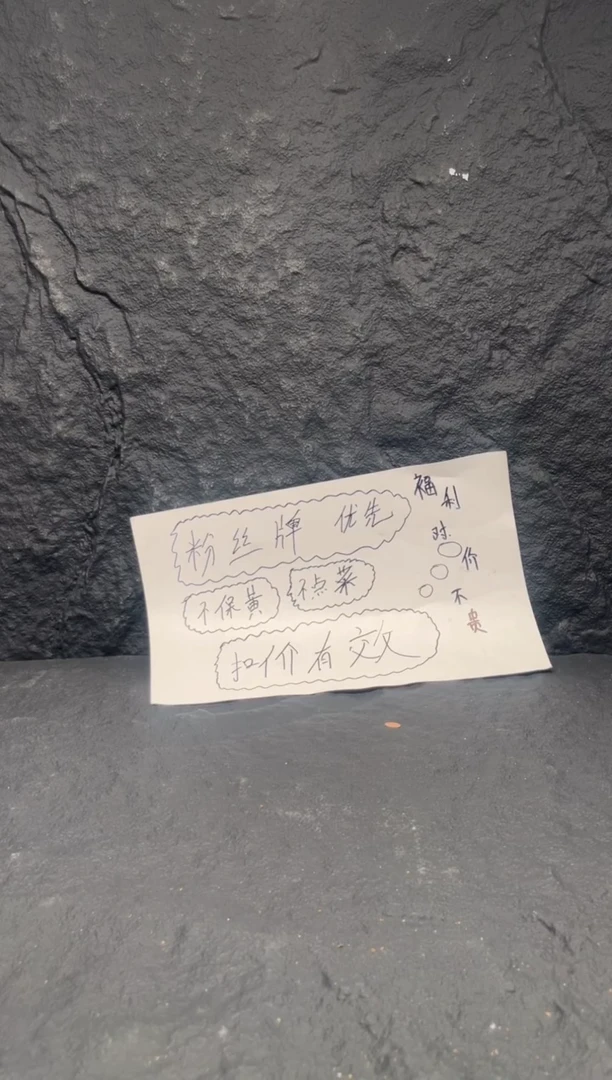 粉丝牌 优先
不保黄 不点菜
扣价有效
福利
时价
不贵